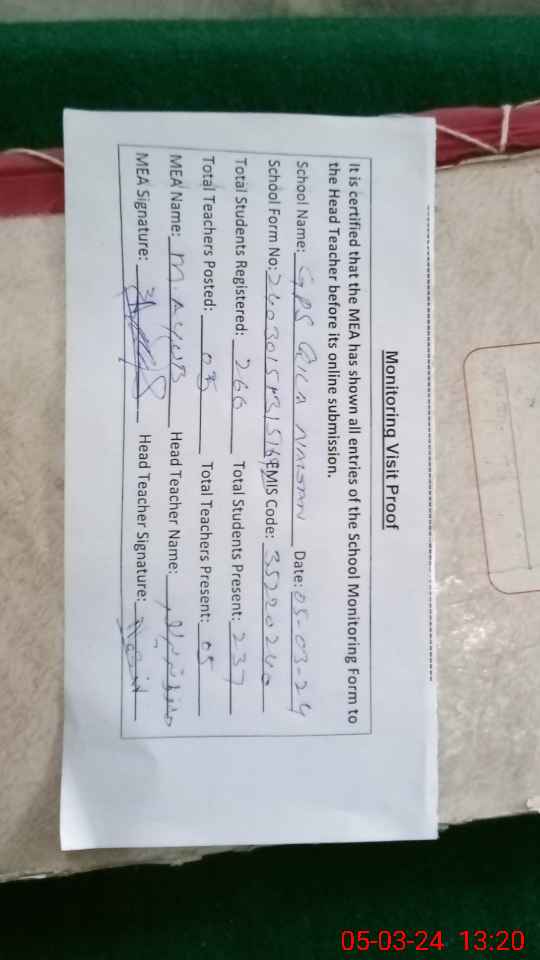 Monitoring Visit Proof
It is certified that the MEA has shown all entries of the School Monitoring Form to
the Head Teacher before its online submission.
School Name: GPS QILA Date: 05-03-24
School Form No: EMIS Code: 35220240
Total Students Registered: 266 Total Students Present: 237
Total Teachers Posted: Total Teachers Present: 05
MEA Name: M AYUB Head Teacher Name:
MEA Signature: Head Teacher Signature:
05-03-24 13:20